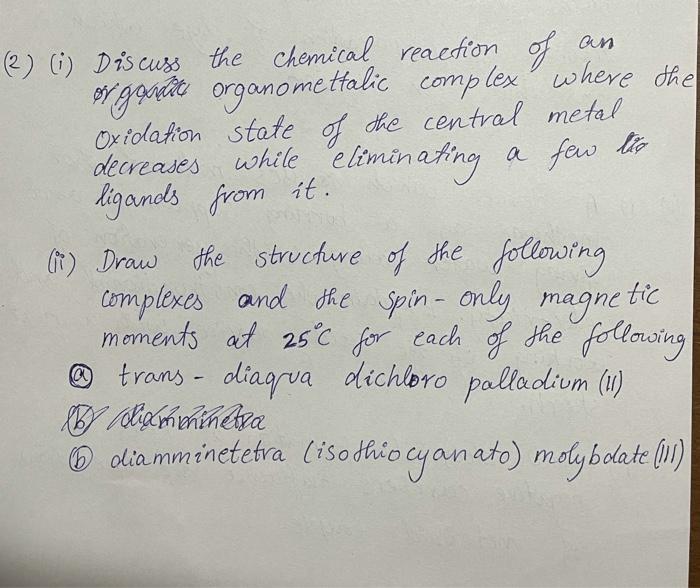 (2) (i) Discuss the chemical reaction of an
organomettalic complex where the
oxidation state of the central metal
decreases while eliminating a few
ligands from it.
(ii) Draw the structure of the following
complexes and the spin-only magnetic
moments at 25°C for each of the following
(a) trans-diaqua dichloro palladium (II)
(b) diamminetetra (isothiocyanato) molybdate (III)